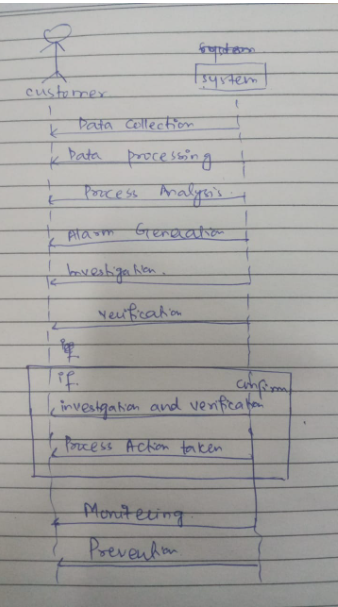 system
customer
Data Collection
Data processing
Process Analysis.
Alarm Geneation
Investigation.
verification
if
if.
confirm
investgation and verification
Process Action taken
Monitering
Prevention